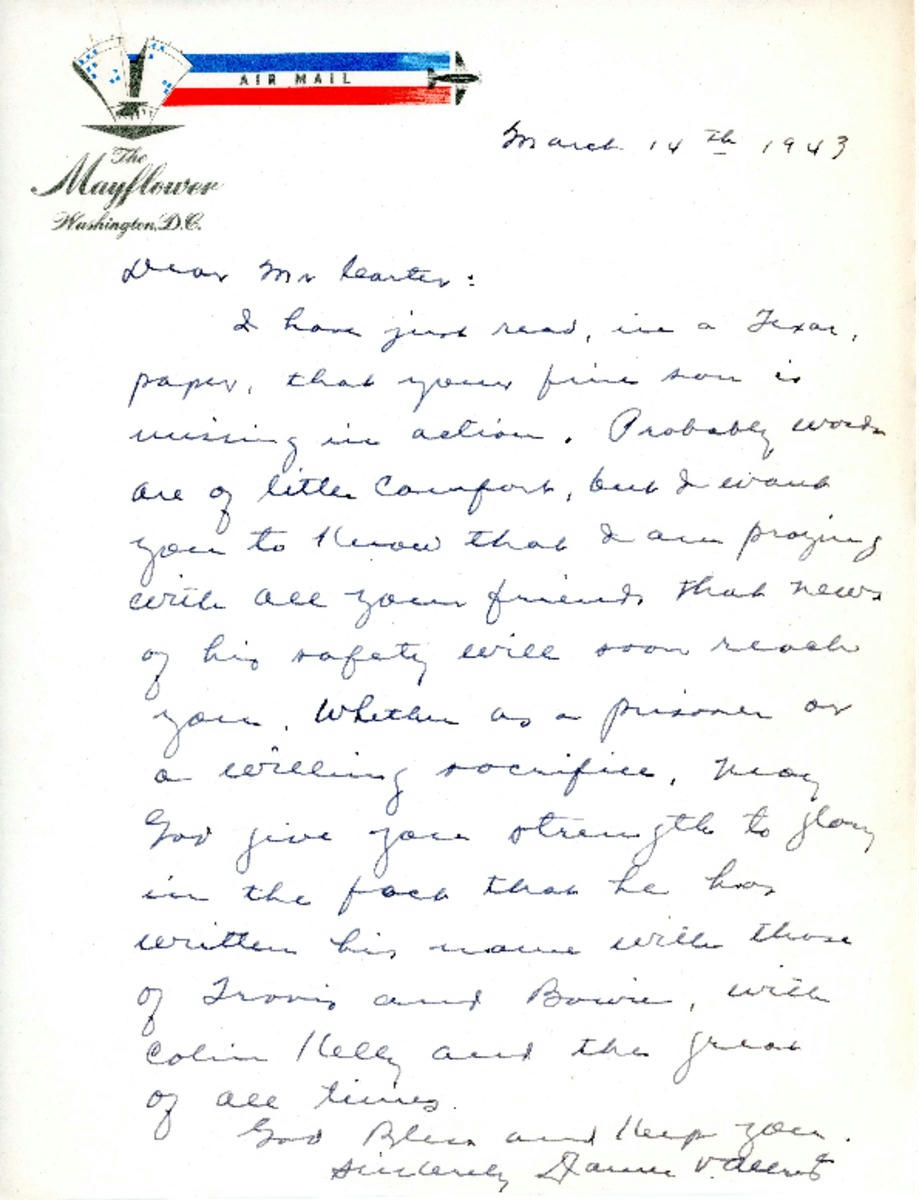 AIR MAIL
The
Mayflower
Washington, D.C.
March 14th 1943
Dear Mr Carter:
I have just read, in a Texas,
paper, that your fine son is
missing in action. Probably words
are of little comfort, but I want
you to know that I am praying
with all your friends that news
of his safety will soon reach
you. Whether as a prisoner or
a willing sacrifice, may
God give you strength to glory
in the fact that he has
written his name with those
of Travis and Bowie, with
Colin Kelly and the great
of all times.
God Bless and Keep you.
Sincerely